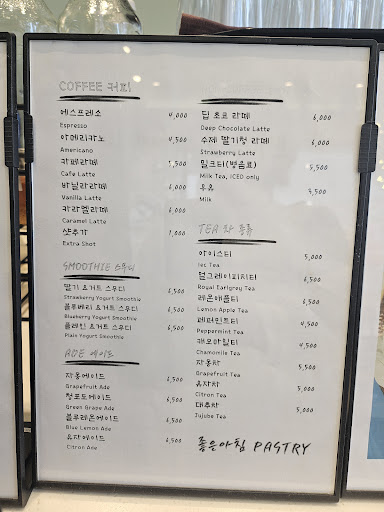 COFFEE 커피
에스프레소 4,000
Espresso
아메리카노 4,500
Americano
카페라떼 5,500
Cafe Latte
바닐라라떼 6,000
Vanilla Latte
카라멜라떼 6,000
Caramel Latte
샷추가 1,000
Extra Shot
SMOOTHIE 스무디
딸기 요거트 스무디 6,500
Strawberry Yogurt Smoothie
블루베리 요거트 스무디 6,500
Blueberry Yogurt Smoothie
플레인 요거트 스무디 6,500
Plain Yogurt Smoothie
ADE 에이드
자몽에이드 6,500
Grapefruit Ade
청포도에이드 6,500
Green Grape Ade
블루레몬에이드 6,500
Blue Lemon Ade
유자에이드 6,500
Citron Ade
딥 초코 라떼 6,000
Deep Chocolate Latte
수제 딸기청 라떼 6,000
Strawberry Latte
밀크티(병음료) 5,500
Milk Tea, ICED only
우유 3,500
Milk
TEA 차 종류
아이스티 5,000
Iec Tea
얼그레이피치티 6,500
Royal Earlgrey Tea
레몬애플티 6,500
Lemon Apple Tea
페퍼민트티 4,500
Peppermint Tea
캐모마일티 4,500
Chamomile Tea
자몽차 5,500
Grapefruit Tea
유자차 5,000
Citron Tea
대추차 5,000
Jujube Tea
좋은아침 PASTRY